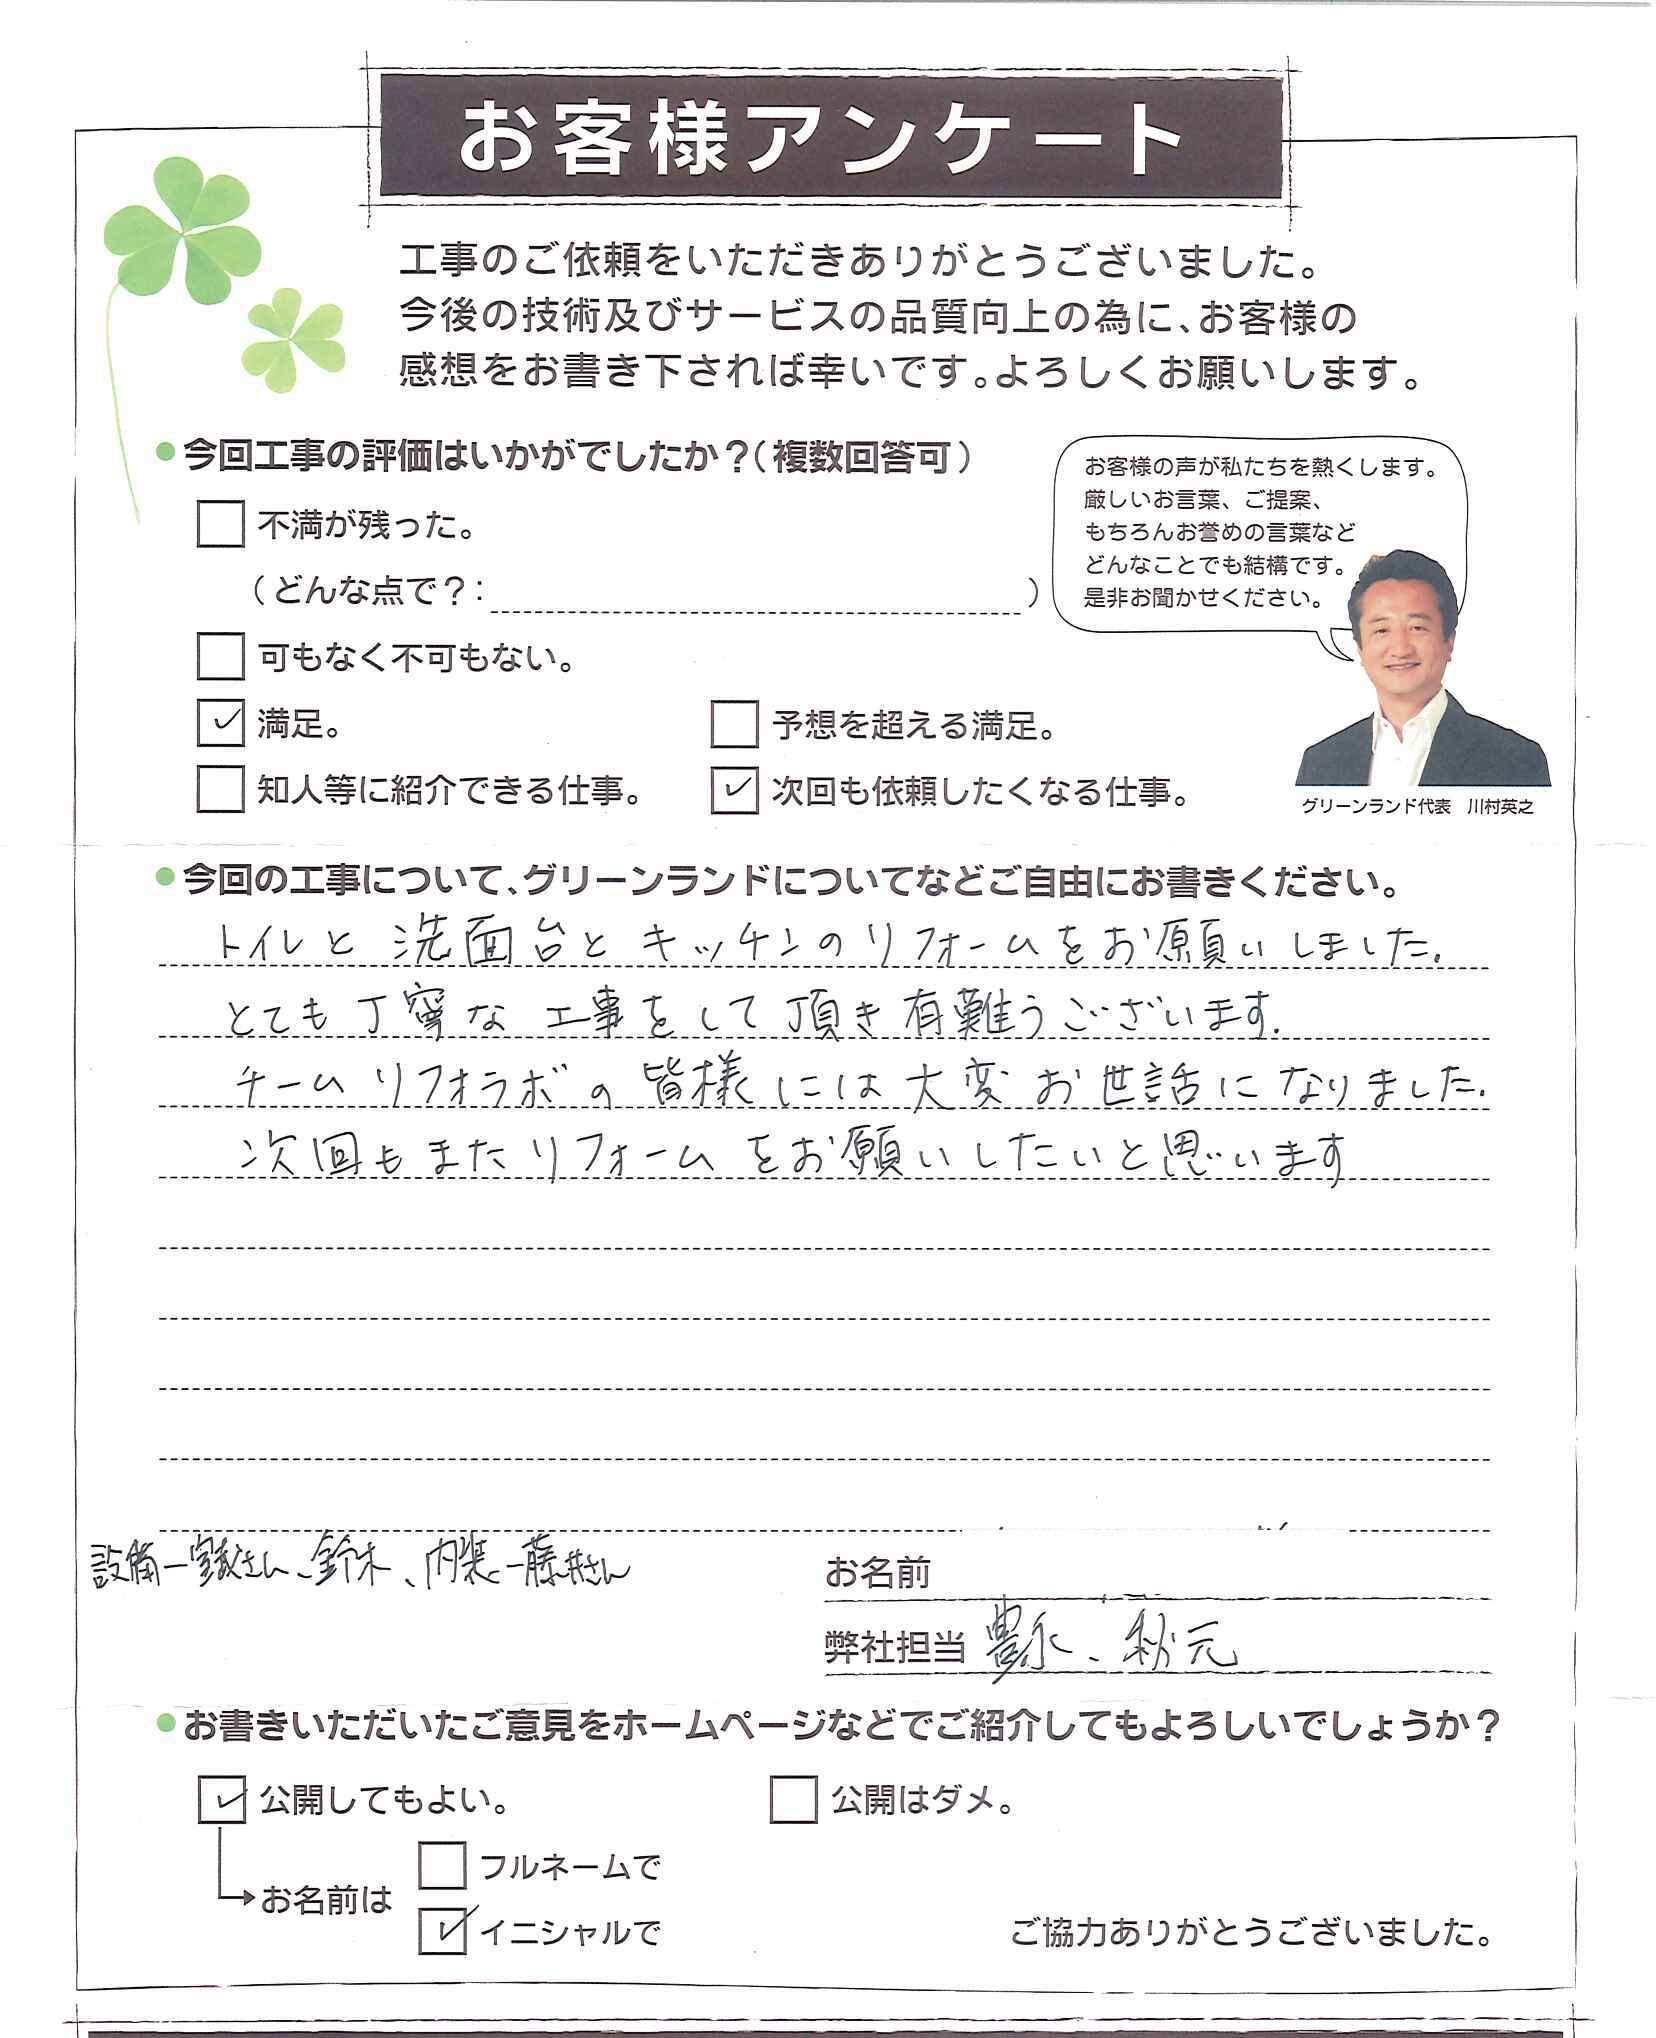 お客様アンケート
工事のご依頼をいただきありがとうございました。
今後の技術及びサービスの品質向上の為に、お客様の
感想をお書き下されば幸いです。よろしくお願いします。
●今回工事の評価はいかがでしたか？（複数回答可）
お客様の声が私たちを熱くします。
厳しいお言葉、ご提案、
もちろんお誉めの言葉など
どんなことでも結構です。
是非お聞かせください。
不満が残った。
（どんな点で？： ）
可もなく不可もない。
✓ 満足。
予想を超える満足。
知人等に紹介できる仕事。
✓ 次回も依頼したくなる仕事。
グリーンランド代表 川村英之
●今回の工事について、グリーンランドについてなどご自由にお書きください。
トイレと洗面台とキッチンのリフォームをお願いしました.
とても丁寧な工事をして頂き有難うございます.
チームリフォラボの皆様には大変お世話になりました.
次回もまたリフォームをお願いしたいと思います
設備ー さん、鈴木、内装ー藤井さん
お名前
弊社担当 豊永、秋元
●お書きいただいたご意見をホームページなどでご紹介してもよろしいでしょうか？
✓ 公開してもよい。
公開はダメ。
フルネームで
お名前は
✓ イニシャルで
ご協力ありがとうございました。